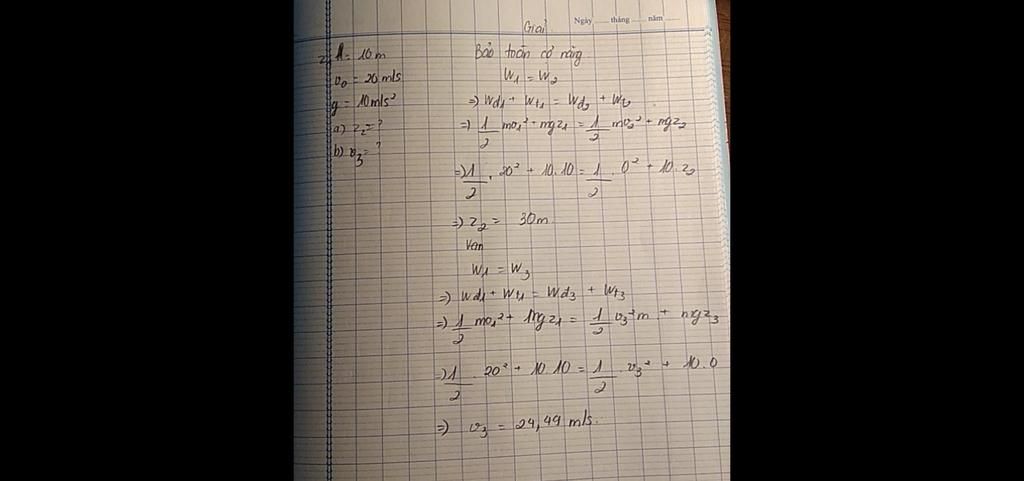 Ngày ..... tháng ..... năm .....
Giải
2, h = 10 m
v₀ = 20 m/s
g = 10 m/s²
a) z₂ = ?
b) v₃ = ?
Bảo toàn cơ năng
W₁ = W₂
=) Wđ₁ + Wt₁ = Wđ₂ + Wt₂
=) 1/2 mv₁² + mgz₁ = 1/2 mv₂² + mgz₂
=) 1/2 . 20² + 10.10 = 1/2 . 0² + 10.z₂
=) z₂ = 30m
W₁ = W₃
=) Wđ₁ + Wt₁ = Wđ₃ + Wt₃
=) 1/2 mv₁² + mgz₁ = 1/2 v₃²m + mgz₃
=) 1/2 . 20² + 10.10 = 1/2 . v₃² + 10.0
=) v₃ = 24,49 m/s.